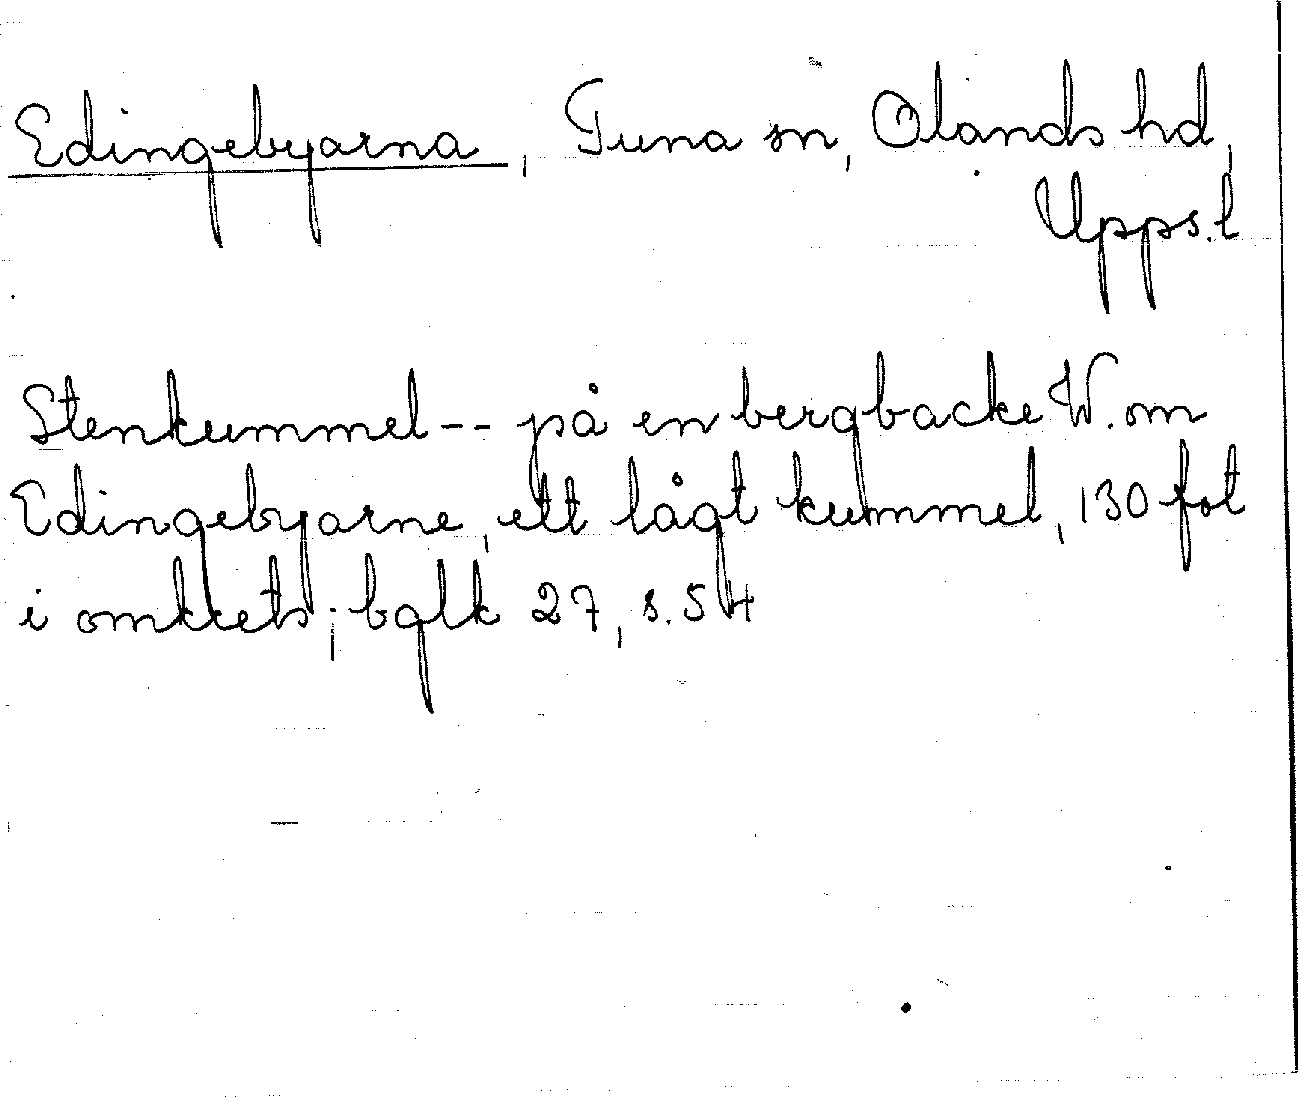 Edingebyarna, Tuna sn, Olands hd,
Upps.l
Stenkummel -- på en bergbacke W. om
Edingebyarne, ett lågt kummel, 130 fot
i omkrets; bglk 27, s. 54